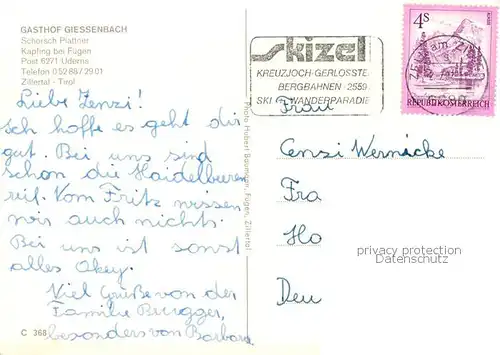 GASTHOF GIESSENBACH
Schorsch Plattner
Kapfing bei Fügen
Post 6271 Uderns
Telefon 05288/2901
Zillertal - Tirol
Liebe Zenzi!
Ich hoffe es geht dir
gut. Bei uns sind
schon die Haidelbeeren
reif. Vom Fritz wissen
wir auch nichts.
Bei uns ist sonst
alles Okey.
Viel Grüße von der
Familie Brugger,
besonders von Barbara
C 368
Photo Hubert Baumann, Fügen, Zillertal
skizel
KREUZJOCH-GERLOSSTE
BERGBAHNEN 2559
SKI WANDERPARADIE
4S
REPUBLIK ÖSTERREICH
ZELL am ZILLER
Frau
Cenzi Wernicke
Fra
Ho
Deu
privacy protection
Datenschutz